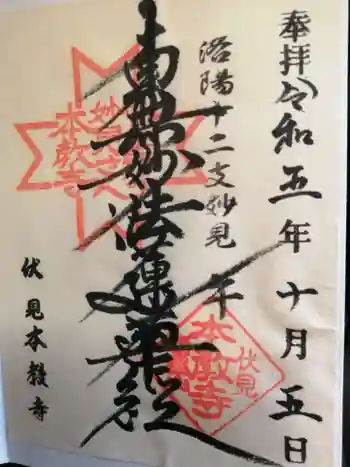 奉拝 令和五年十月五日
洛陽十二支妙見 午
南無妙法蓮華経
伏見本教寺
本教寺
伏見
本教寺